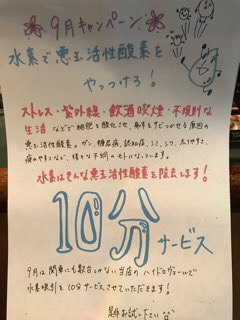 9月キャンペーン
水素で悪玉活性酸素を
やっつけろ!
ストレス・紫外線・飲酒喫煙・不規則な
生活などで細胞を酸化させ、身体をサビつかせる原因の
悪玉活性酸素。ガン、糖尿病、認知症、シミ、シワ、太りやすく、
疲れやすくなど、様々な不調のモトになっています。
水素はそんな悪玉活性酸素を除去します!
10分
サービス
9月は関東にも数台しかない当店のハイドロヴェールで
水素吸引を10分サービスさせていただきます!
是非お試し下さい